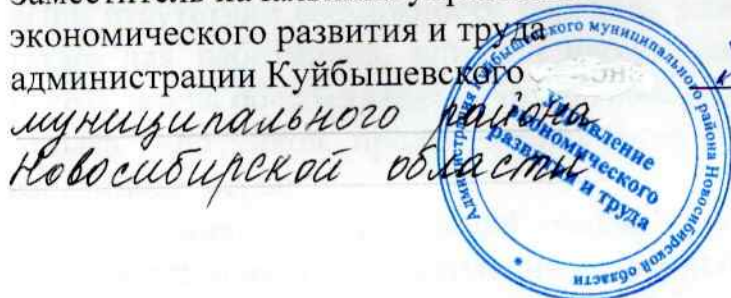 Заместитель начальника управления
экономического развития и труда
администрации Куйбышевского
муниципального района
Новосибирской области
Администрация Куйбышевского муниципального района Новосибирской области
Управление
экономического
развития и труда